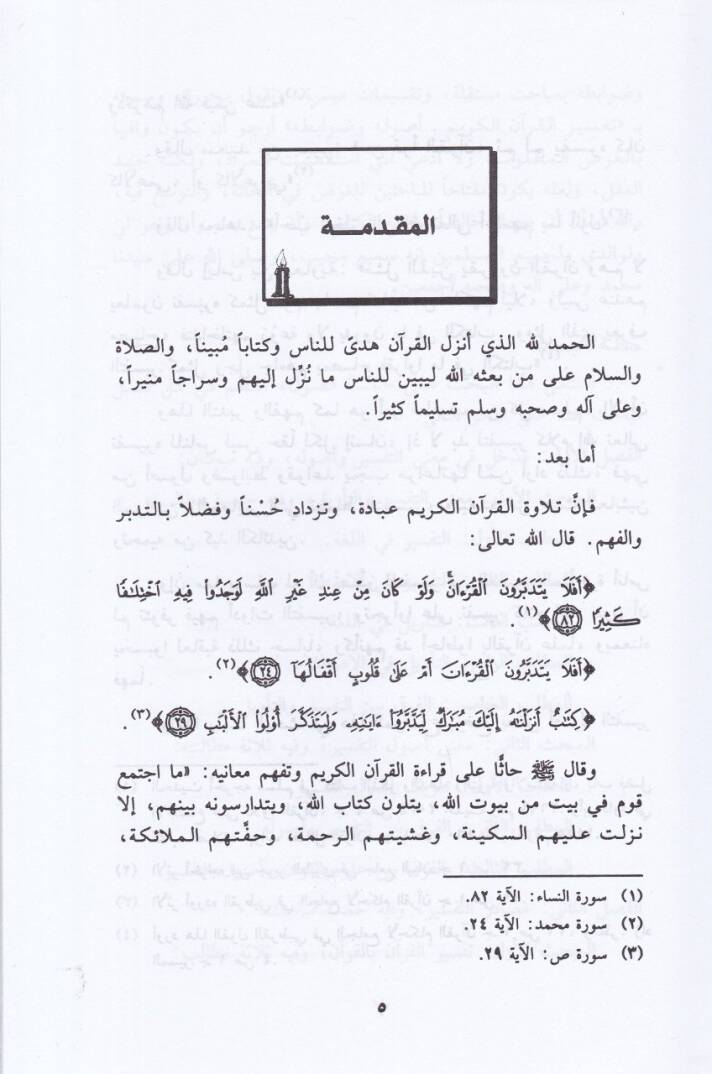 المقدمـــة
الحمد لله الذي أنزل القرآن هدىً للناس وكتاباً مُبيناً، والصلاة
والسلام على من بعثه الله ليبين للناس ما نُزِّل إليهم وسراجاً منيراً،
وعلى آله وصحبه وسلم تسليماً كثيراً.
أما بعد:
فإنَّ تلاوة القرآن الكريم عبادة، وتزداد حُسْناً وفضلاً بالتدبر
والفهم. قال الله تعالى:
﴿أَفَلَا يَتَدَبَّرُونَ ٱلْقُرْءَانَۚ وَلَوْ كَانَ مِنْ عِندِ غَيْرِ ٱللَّهِ لَوَجَدُوا۟ فِيهِ ٱخْتِلَٰفًا
كَثِيرًا ٨٢﴾(١).
﴿أَفَلَا يَتَدَبَّرُونَ ٱلْقُرْءَانَ أَمْ عَلَىٰ قُلُوبٍ أَقْفَالُهَآ ٢٤﴾(٢).
﴿كِتَٰبٌ أَنزَلْنَٰهُ إِلَيْكَ مُبَٰرَكٌ لِّيَدَّبَّرُوٓا۟ ءَايَٰتِهِۦ وَلِيَتَذَكَّرَ أُو۟لُوا۟ ٱلْأَلْبَٰبِ ٢٩﴾(٣).
وقال ﷺ حاثًّا على قراءة القرآن الكريم وتفهم معانيه: «ما اجتمع
قوم في بيت من بيوت الله، يتلون كتاب الله، ويتدارسونه بينهم، إلا
نزلت عليهم السكينة، وغشيتهم الرحمة، وحفَّتهم الملائكة،
(١) سورة النساء: الآية ٨٢.
(٢) سورة محمد: الآية ٢٤.
(٣) سورة ص: الآية ٢٩.
٥